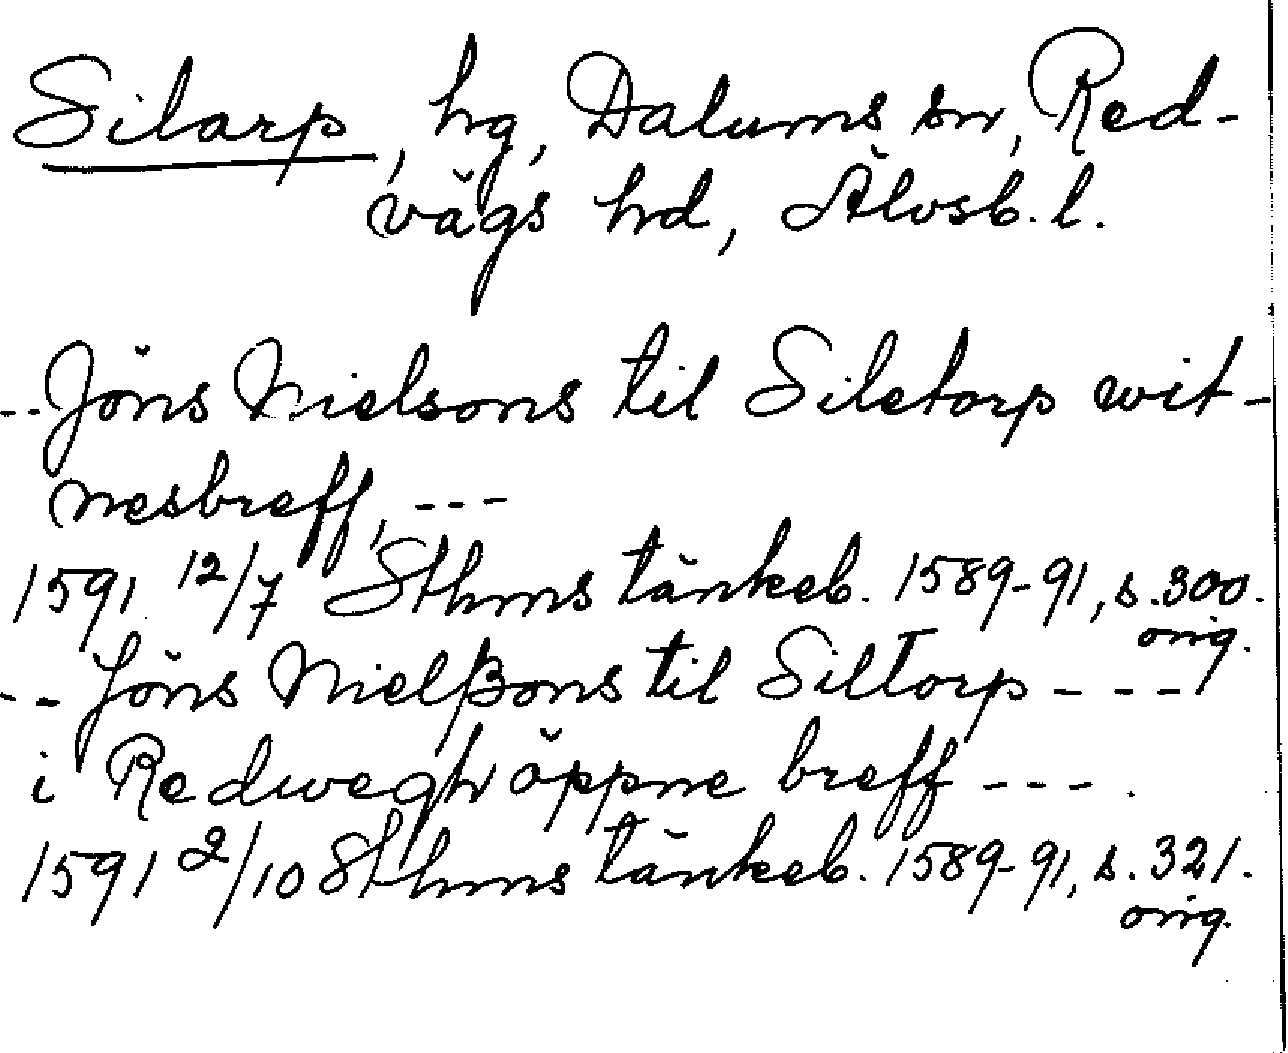 Silarp, hg, Dalums sn, Red-
vägs hd, Älvsb. l.
--Jöns Nielsons til Siletorp wit-
nesbreff, ---
1591 12/7 Sthms tänkeb. 1589-91, s. 300.
orig.
-- Jöns Nielßons til Siltorp ---
i Redwegh öppne breff ---.
1591 2/10 Sthms tänkeb. 1589-91, s. 321.
orig.